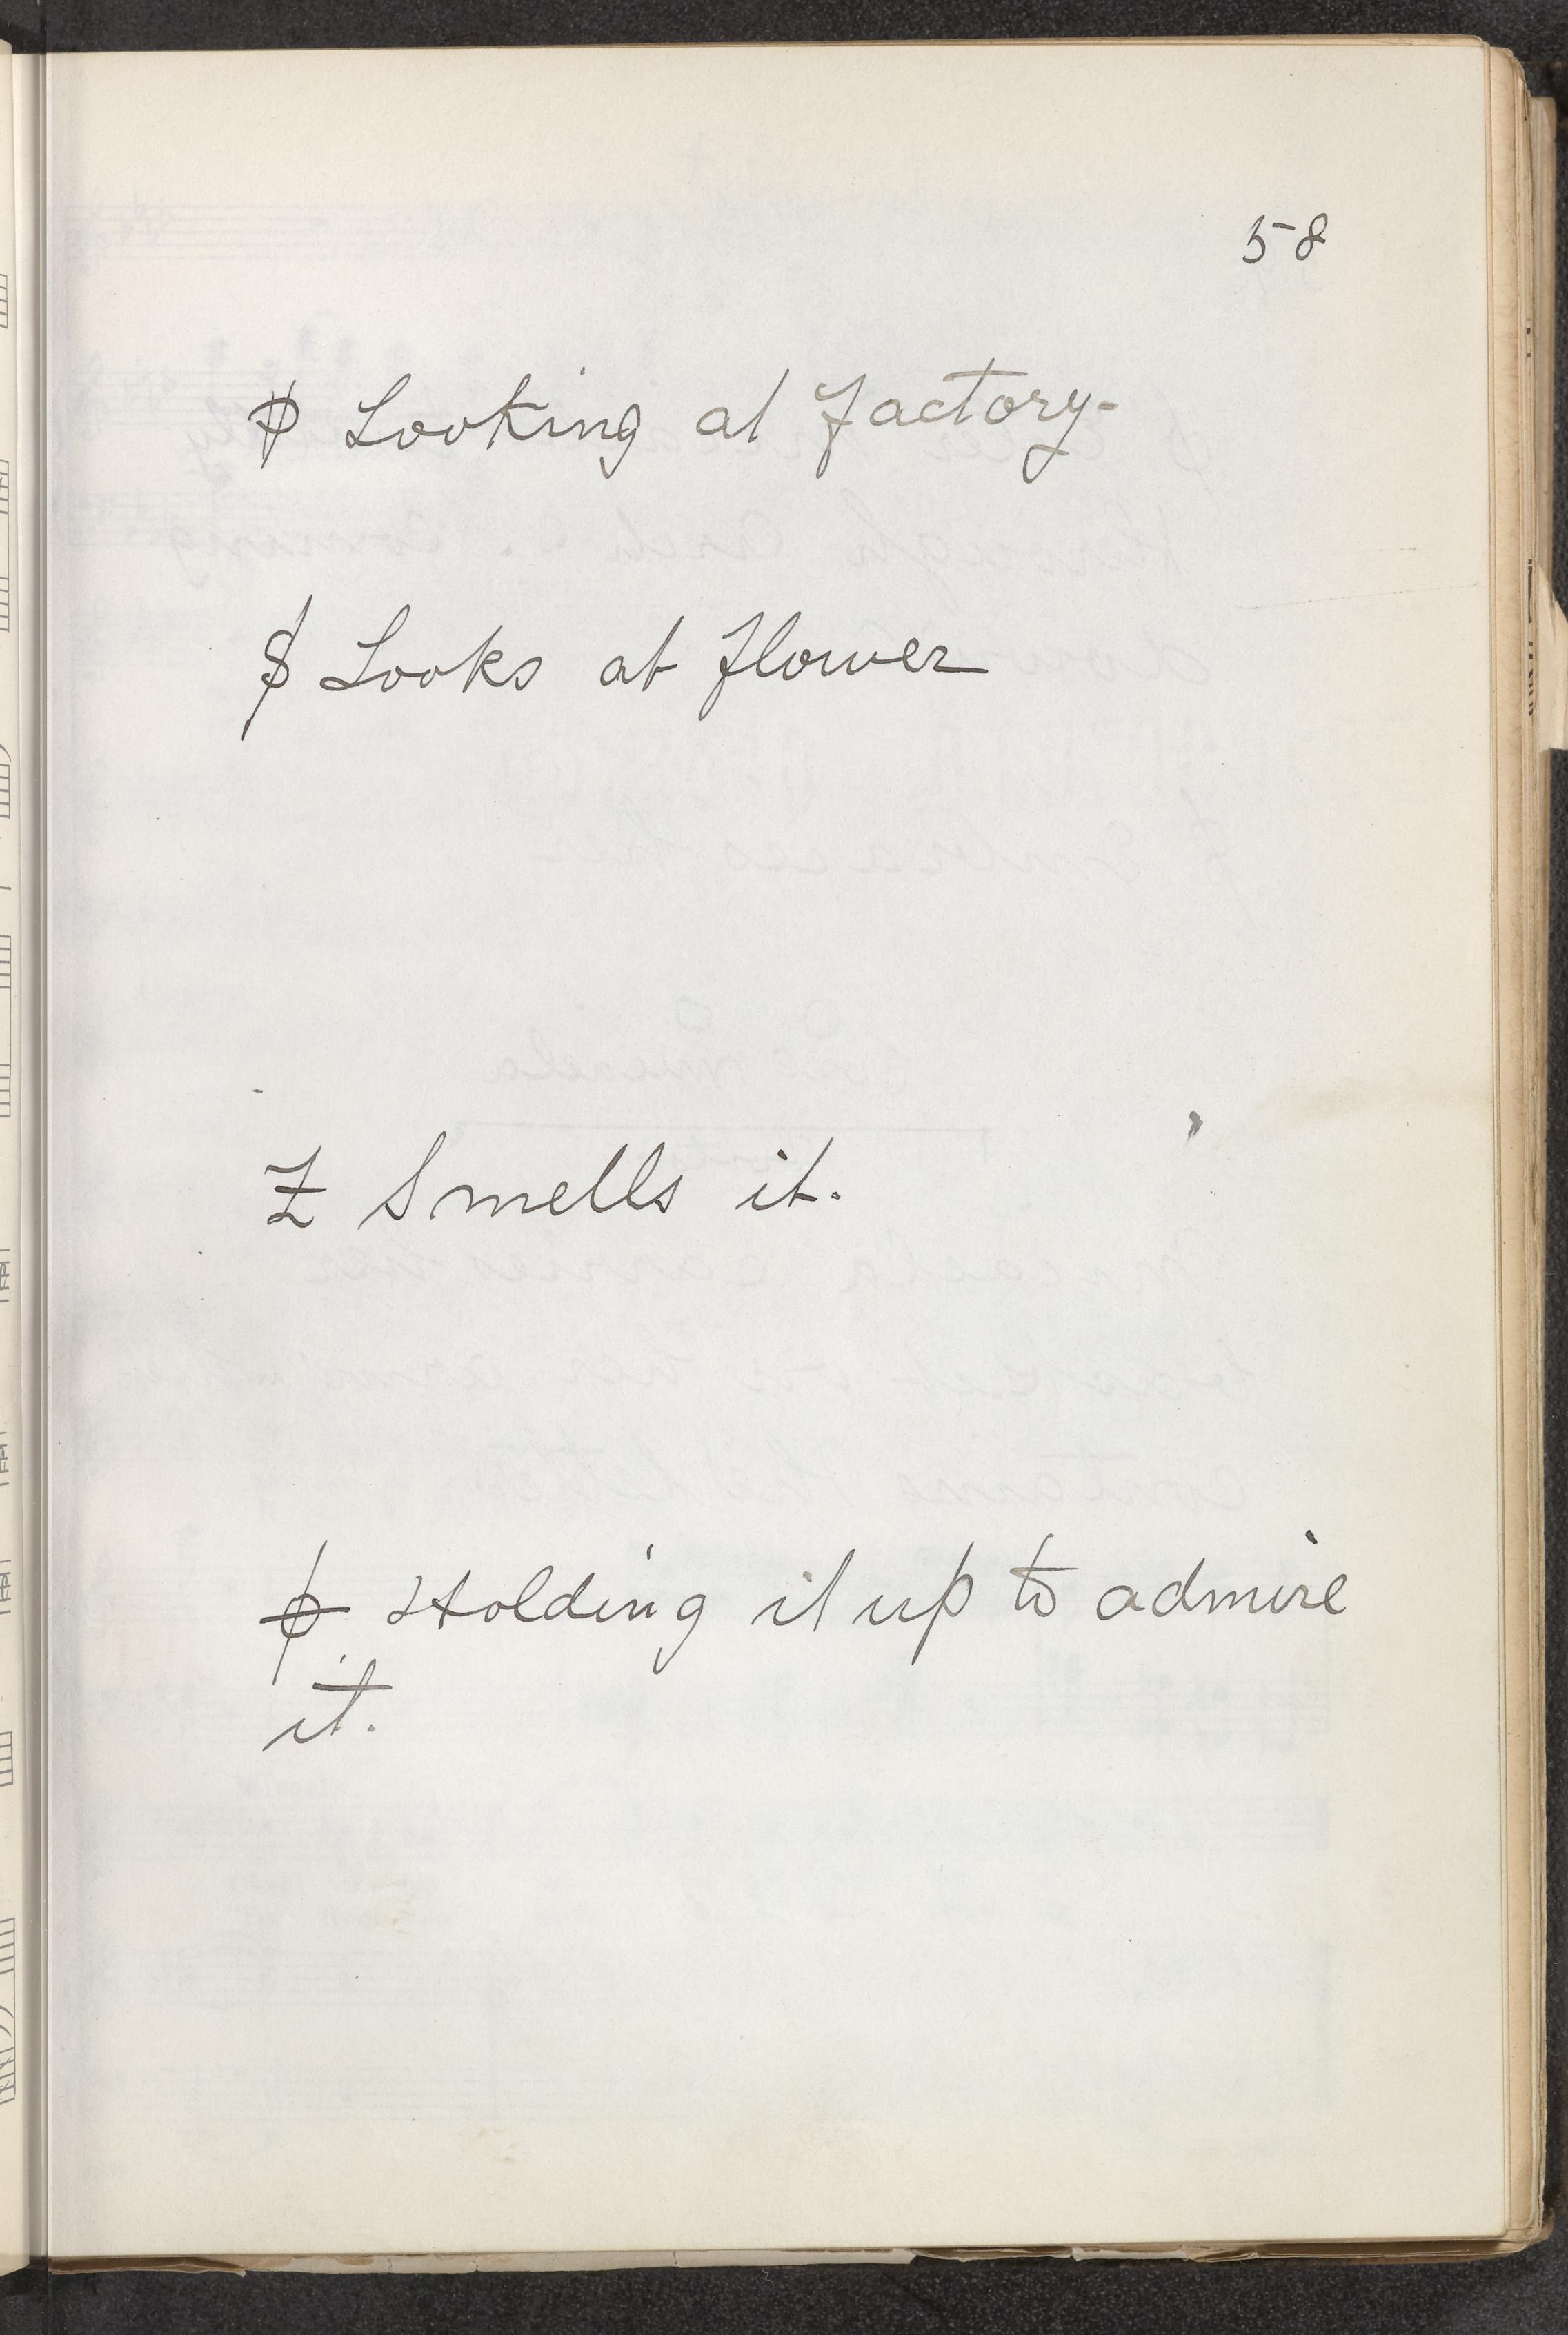 58
φ Looking at Factory-
$ Looks at flower
Ƶ Smells it.
ϕ Holding it up to admire
it.